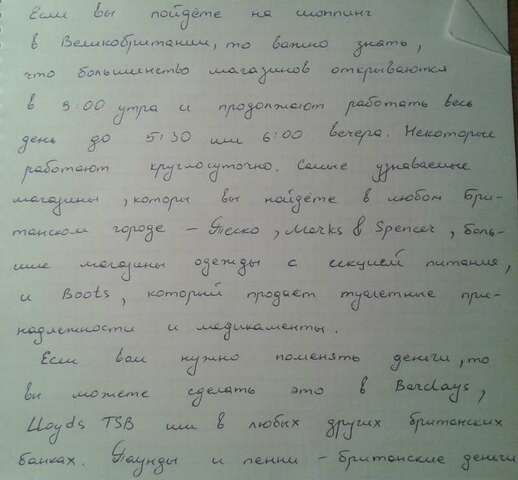 Если вы пойдёте на шоппинг
в Великобритании, то важно знать,
что большинство магазинов открываются
в 9:00 утра и продолжают работать весь
день до 5:30 или 6:00 вечера. Некоторые
работают круглосуточно. Самые узнаваемые
магазины, которы вы найдёте в любом Бри-
танском городе – Теско, Marks & Spencer, боль-
шие магазины одежды с секцией питания,
и Boots, который продает туалетные при-
надлежности и медикаменты.
Если вам нужно поменять деньги, то
вы можете сделать это в Barclays,
Lloyds TSB или в любых других британских
банках. Паунды и пенни – британские деньги